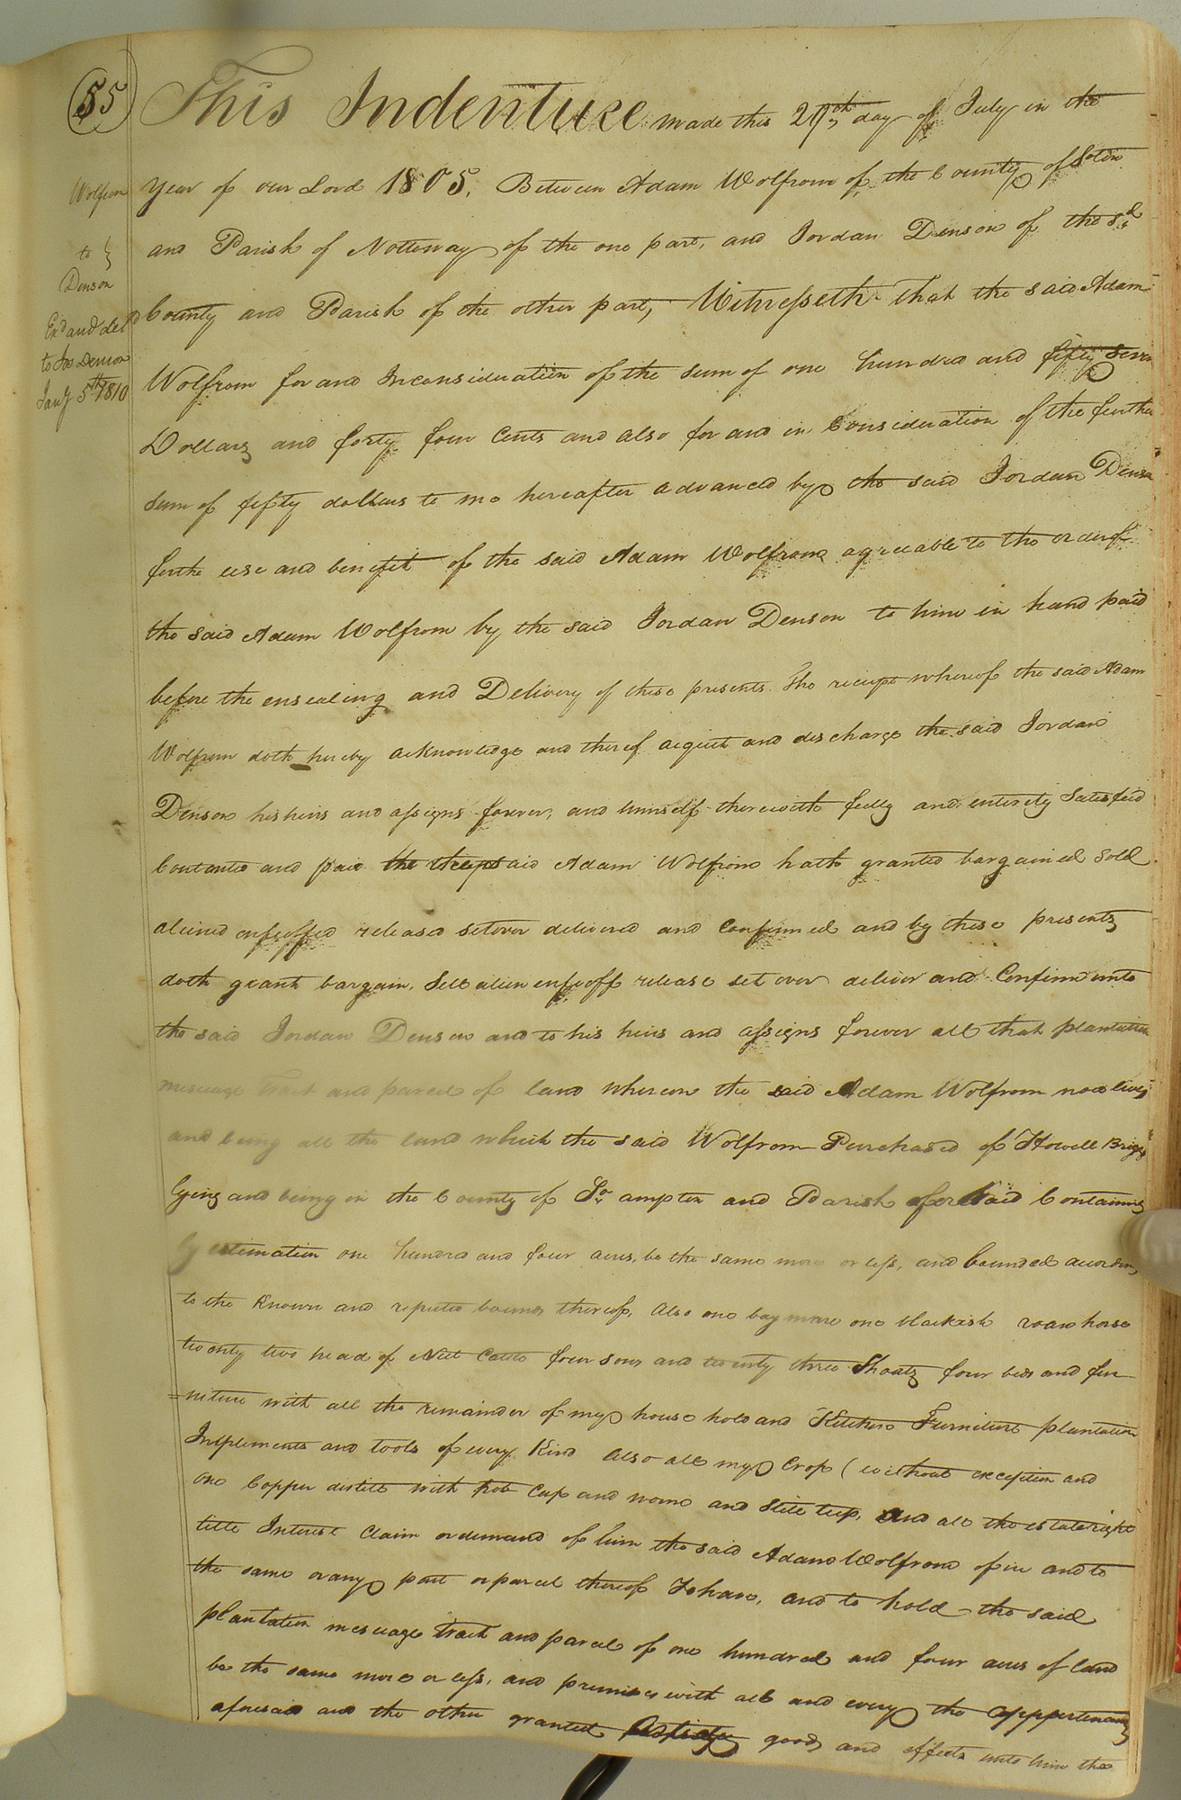 55
This Indenture made this 29th day of July in the
Wolfrom
year of our Lord 1805, Between Adam Wolfrom of the County of Soton
to }
and Parish of Nottoway of the one part, and Jordan Denson of the sd
Denson
County and Parish of the other part, Witnesseth that the said Adam
Exd and deld
to Jos Denson
Jany 5th 1810
Wolfrom for and Inconsideration of the sum of one hundred and fifty seven
Dollars and forty four Cents and also for and in Consideration of the further
Sum of fifty dollars to me hereafter advanced by the said Jordan Denson
for the use and benefit of the said Adam Wolfrom agreeable to the order of
the said Adam Wolfrom by the said Jordan Denson to him in hand paid
before the ensealing and Delivery of these presents The receipt whereof the said Adam
Wolfrom doth hereby acknowledge and thereof acquit and discharge the said Jordan
Denson his heirs and assigns forever, and himself therewith fully and entirely Satisfied
Contented and paid the said Adam Wolfrom hath granted bargained Sold
aliened enfeoffed released setover delivered and Confirmed and by these presents
doth grant bargain, Sell alien enfeoff release set over deliver and Confirm unto
the said Jordan Denson and to his heirs and assigns forever all that plantation
messuage tract and parcel of land whereon the said Adam Wolfrom now lives
and being all the land which the said Wolfrom Purchased of Howell Briggs
lying and being in the County of So ampton and Parish aforesaid Containing
by estimation one hundred and four acres, be the same more or less, and bounded according
to the known and reputed bounds thereof, Also one bay mare one blackish roan horse
twenty two head of Neet Cattle four sows and twenty three Shoats four beds and fur
=niture with all the remainder of my house hold and Kitchen Furniture plantation
Implements and tools of every Kind Also all my Crop (without exception and
one Copper distill with Cap and worm and Still tub, and all the estate right
title Interest Claim or demand of him the said Adam Wolfrom of in and to
the same or any part or parcel thereof To have, and to hold the said
plantation messuage tract and parcel of one hundred and four acres of land
be the same more or less, and premises with all and every the appertenances
aforesaid and the other granted goods and effects unto him the